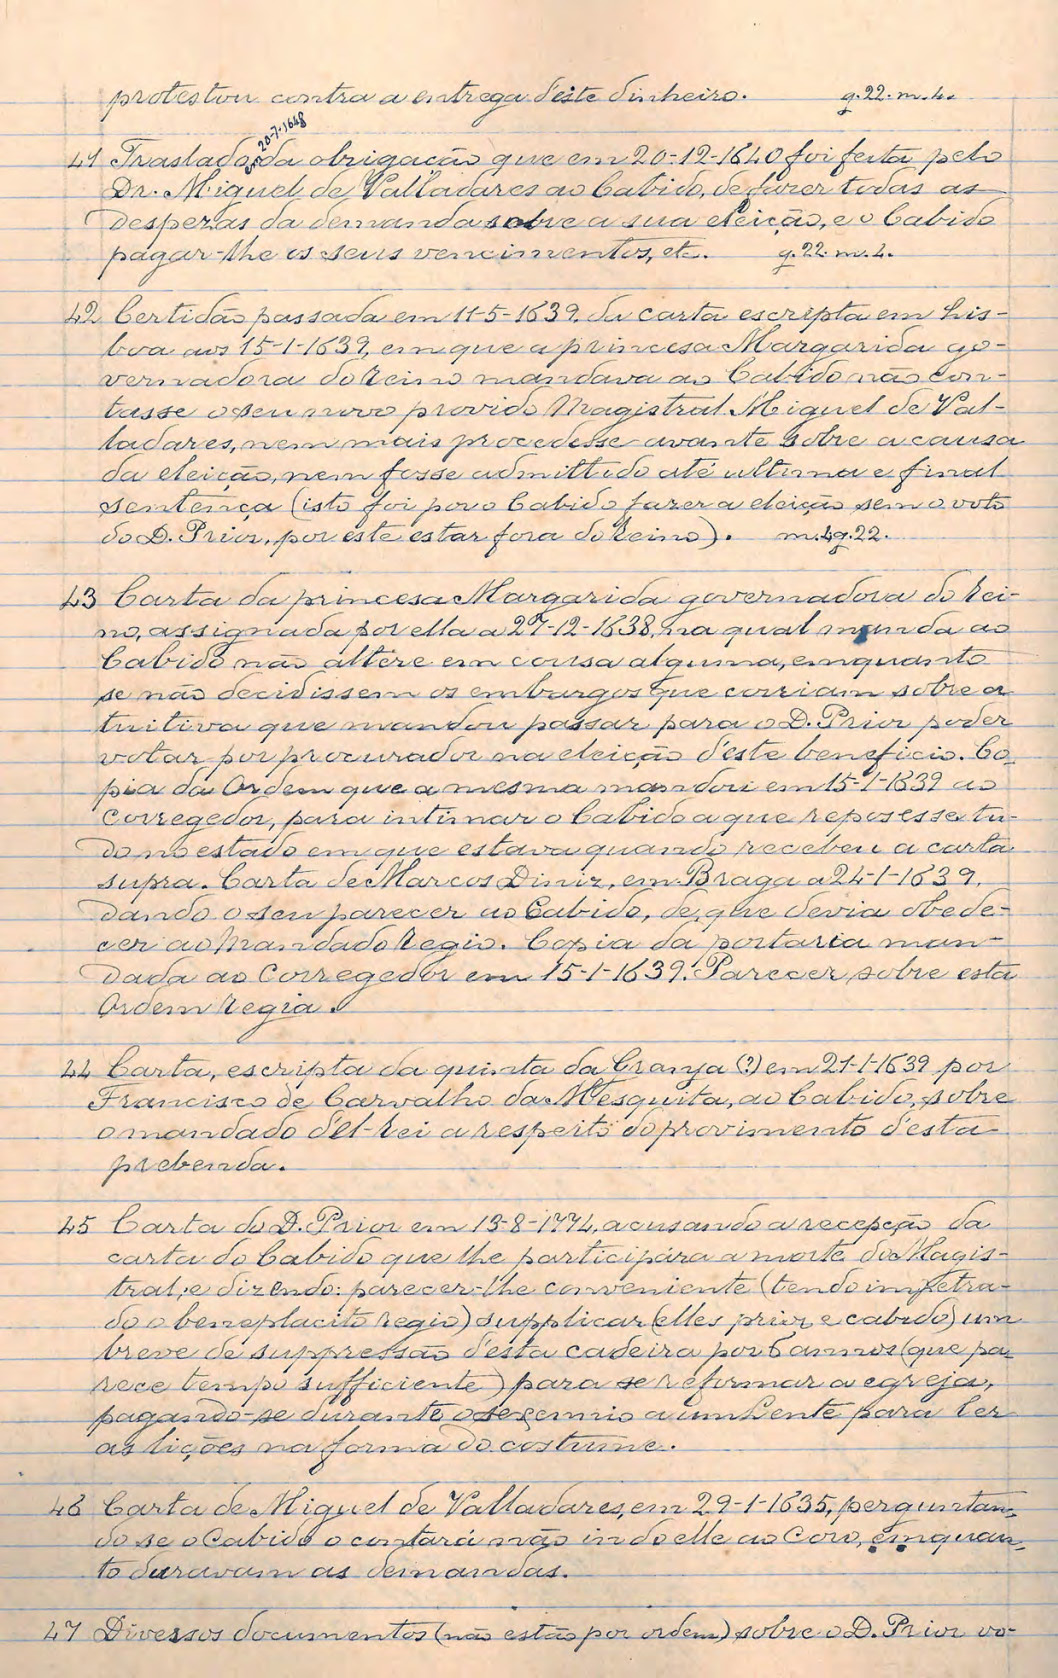 protestou contra a entrega d'este dinheiro. g. 22. m. 4.
em 20-7-1648
41 Traslado da obrigação que em 20-12-1640 foi feita pelo
Dr. Miguel de Valladares ao Cabido, de fazer todas as
despezas da demanda sobre a sua eleição, e o Cabido
pagar-lhe os seus vencimentos, etc. g. 22. m. 4.
42 Certidão passada em 11-5-1639, da carta escripta em Lis-
boa aos 15-1-1639, em que a princesa Margarida go-
vernadora do Reino mandava ao Cabido não con-
tasse o seu novo provido Magistral Miguel de Val-
ladares, nem mais procedesse avante sobre a causa
da eleição, nem fosse admittido até ultima e final
sentença (isto foi por o Cabido fazer a eleição sem o voto
do D. Prior, por este estar fora do Reino). m. 4 g. 22.
43 Carta da princesa Margarida governadora do Rei-
no, assignada por ella a 27-12-1638, na qual manda ao
Cabido não altere em cousa alguma, emquanto
se não decidissem os embargos que corriam sobre a
tuitiva que mandou passar para o D. Prior poder
votar por procurador na eleição d'este beneficio. Co-
pia da Ordem que a mesma mandou em 15-1-1639 ao
Corregedor, para intimar o Cabido a que reposesse tu-
do no estado em que estava quando recebeu a carta
supra. Carta de Marcos Diniz, em Braga a 24-1-1639,
dando o seu parecer ao Cabido, de que devia obede-
cer ao Mandado Regio. Copia da portaria man-
dada ao Corregedor em 15-1-1639. Parecer sobre esta
Ordem Regia.
44 Carta, escripta da quinta da Granja (?) em 21-1-1639 por
Francisco de Carvalho da Mesquita, ao Cabido, sobre
o mandado d'el-rei a respeito do provimento d'esta
prebenda.
45 Carta do D. Prior em 13-8-1774, acusando a recepção da
carta do Cabido que lhe participára a morte do Magis-
tral, e dizendo: parecer-lhe conveniente (tendo impetra-
do o beneplacito regio) supplicar (elles prior e cabido) um
breve de suppressão d'esta cadeira por 6 annos (que pa-
rece tempo sufficiente) para se reformar a egreja,
pagando-se durante o sexennio a um Lente para ler
as lições na forma do costume.
46 Carta de Miguel de Valladares, em 29-1-1635, perguntan-
do se o Cabido o contará não indo elle ao Coro, emquan-
to duravam as demandas.
47 Diversos documentos (não estão por ordem) sobre o D. Prior vo-